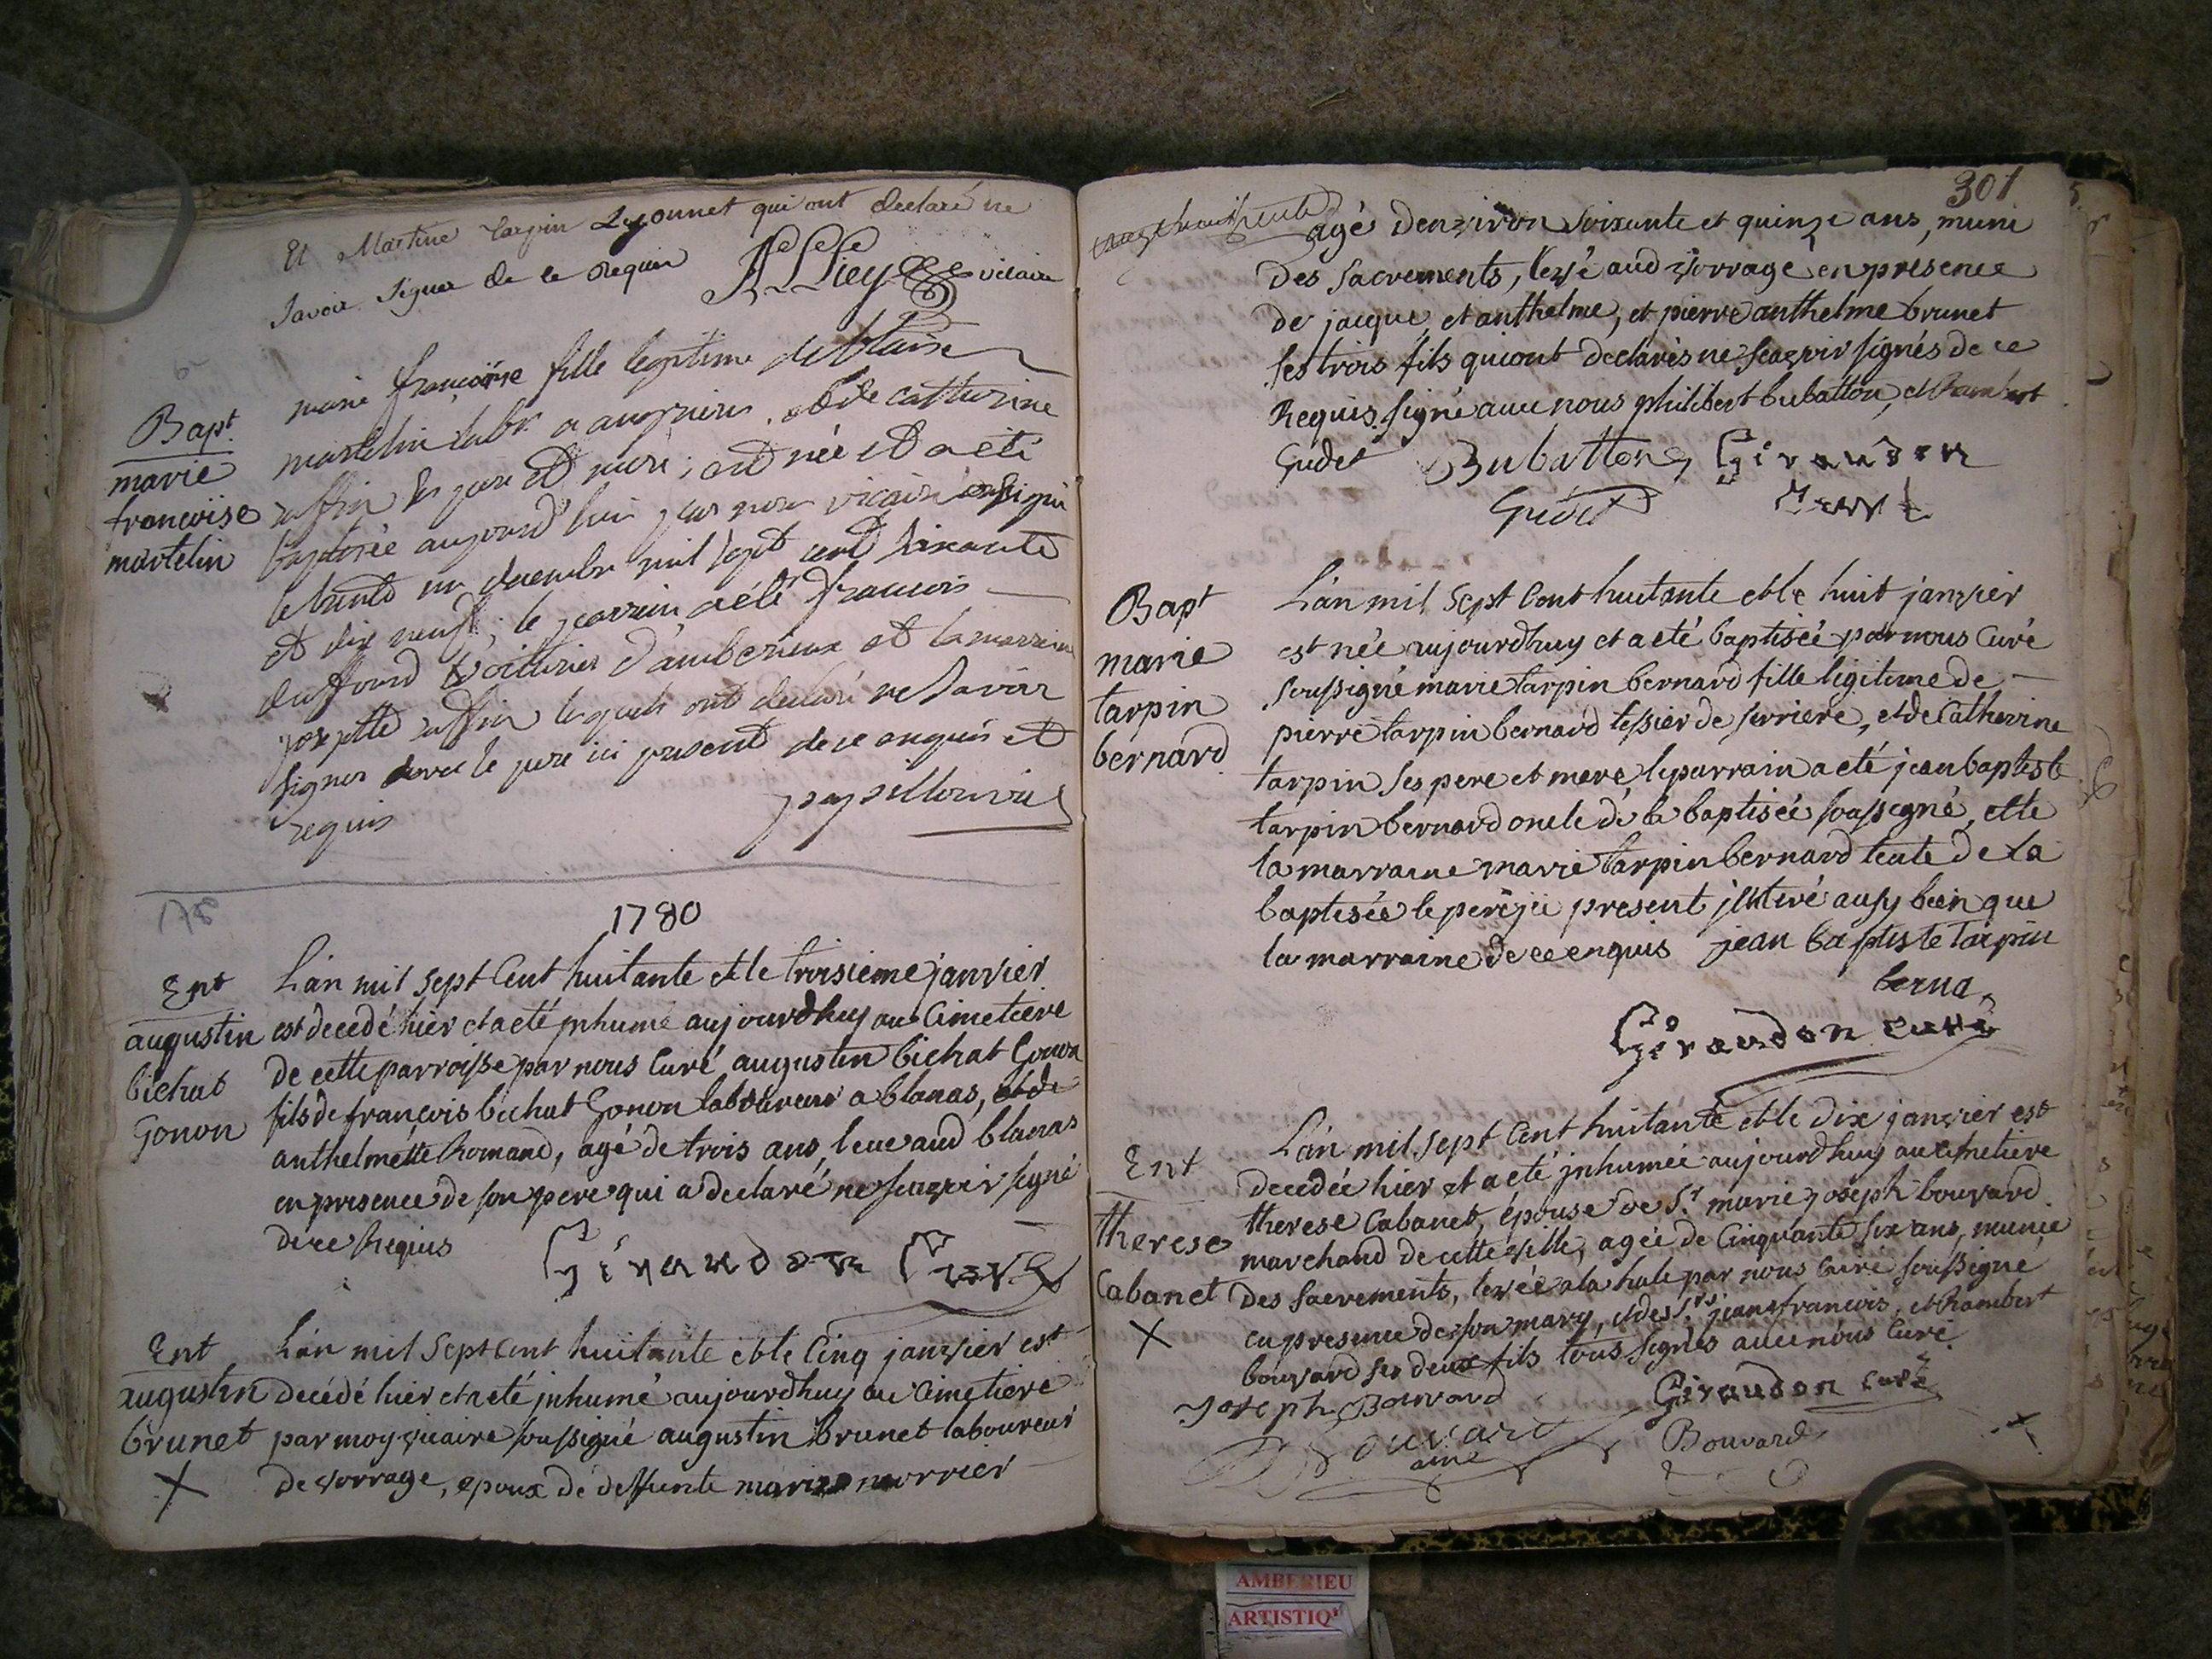 Et Martine tarpin Lyonnet qui ont declaré ne
Savoir Signer de ce Requis
vicaire
Bapt
marie
francoise
martelin
marie francoise fille legitime de blaise
martelin labr a . et de catherine
ruffin ses pere et mere, est née et a eté
baptisée aujourd'hui par nous vicaire soussigné
le trente un decembre mil sept cent soixante
et dix neuf; le parrain a eté francois
duffourd voiturier d'amberieux et la marraine
josephte ruffin lesquels ont declaré ne Savoir
signer avec le pere ici present de ce enquis et
requis
papillon vic
178
1780
Ent
augustin
bichat
Gonon
L'an mil sept Cent huitante et le troisieme janvier
est decedé hier et a eté jnhumé aujourdhuy au Cimetiere
de cette parroisse par nous Curé augustin bichat Gonon
fils de françois bichat Gonon laboureur a blanas, et de
anthelmette Romand, agé de trois ans, levé aud blanas
en presence de son pere qui a declaré ne scavoir signé
de ce Requis
Giraudon Curé
Ent
augustin
brunet
X
L'an mil Sept Cent huitante et le Cinq janvier est
decédé hier et a eté jnhumé aujourdhuy au Cimetiere
par moy vicaire soussigné augustin brunet laboureur
de vorrage, epoux de deffunte marie morrier
301
agé denviron soixante et quinze ans, muni
des sacrements, levé aud vorrage en presence
de jacque, et anthelme, et pierre anthelme brunet
ses trois fils qui ont declarés ne scavoir signés de ce
Requis. signé avec nous philibert bubatton, et Rambert
Gudet
Bubatton
Giraudon
Gudet
Curé
Bapt
marie
tarpin
bernard
L'an mil Sept Cent huitante et le huit janvier
est née aujourdhuy et a eté baptisée par nous Curé
soussigné marie tarpin bernard fille legitime de
pierre tarpin bernard tessier de serriere, et de Catherine
tarpin ses pere et mere, le parrain a eté jean baptiste
tarpin bernard oncle de la baptisée soussigné, et le
la marraine marie tarpin bernard tente de la
baptisée le pere jci present jllitéré aussy bien que
la marraine de ce enquis
jean baptiste tarpin
berna
Giraudon curé
Ent
therese
Cabanet
X
L'an mil Sept Cent huitante et le dix janvier est
decedée hier et a eté jnhumée aujourdhuy au cimetiere
therese Cabanet, épouse de Sr. marie joseph bouvard
marchand de cette ville, agée de Cinquante six ans, munie
des sacrements, levée a la hale par nous Curé soussigné
en presence de son mary, et des Srs. jean francois, et Rambert
bouvard ses deux fils tous signés avec nous Curé
Joseph Bouvard
Giraudon curé
Bouvard
ainé
Bouvard
AMBERIEU
ARTISTIQ